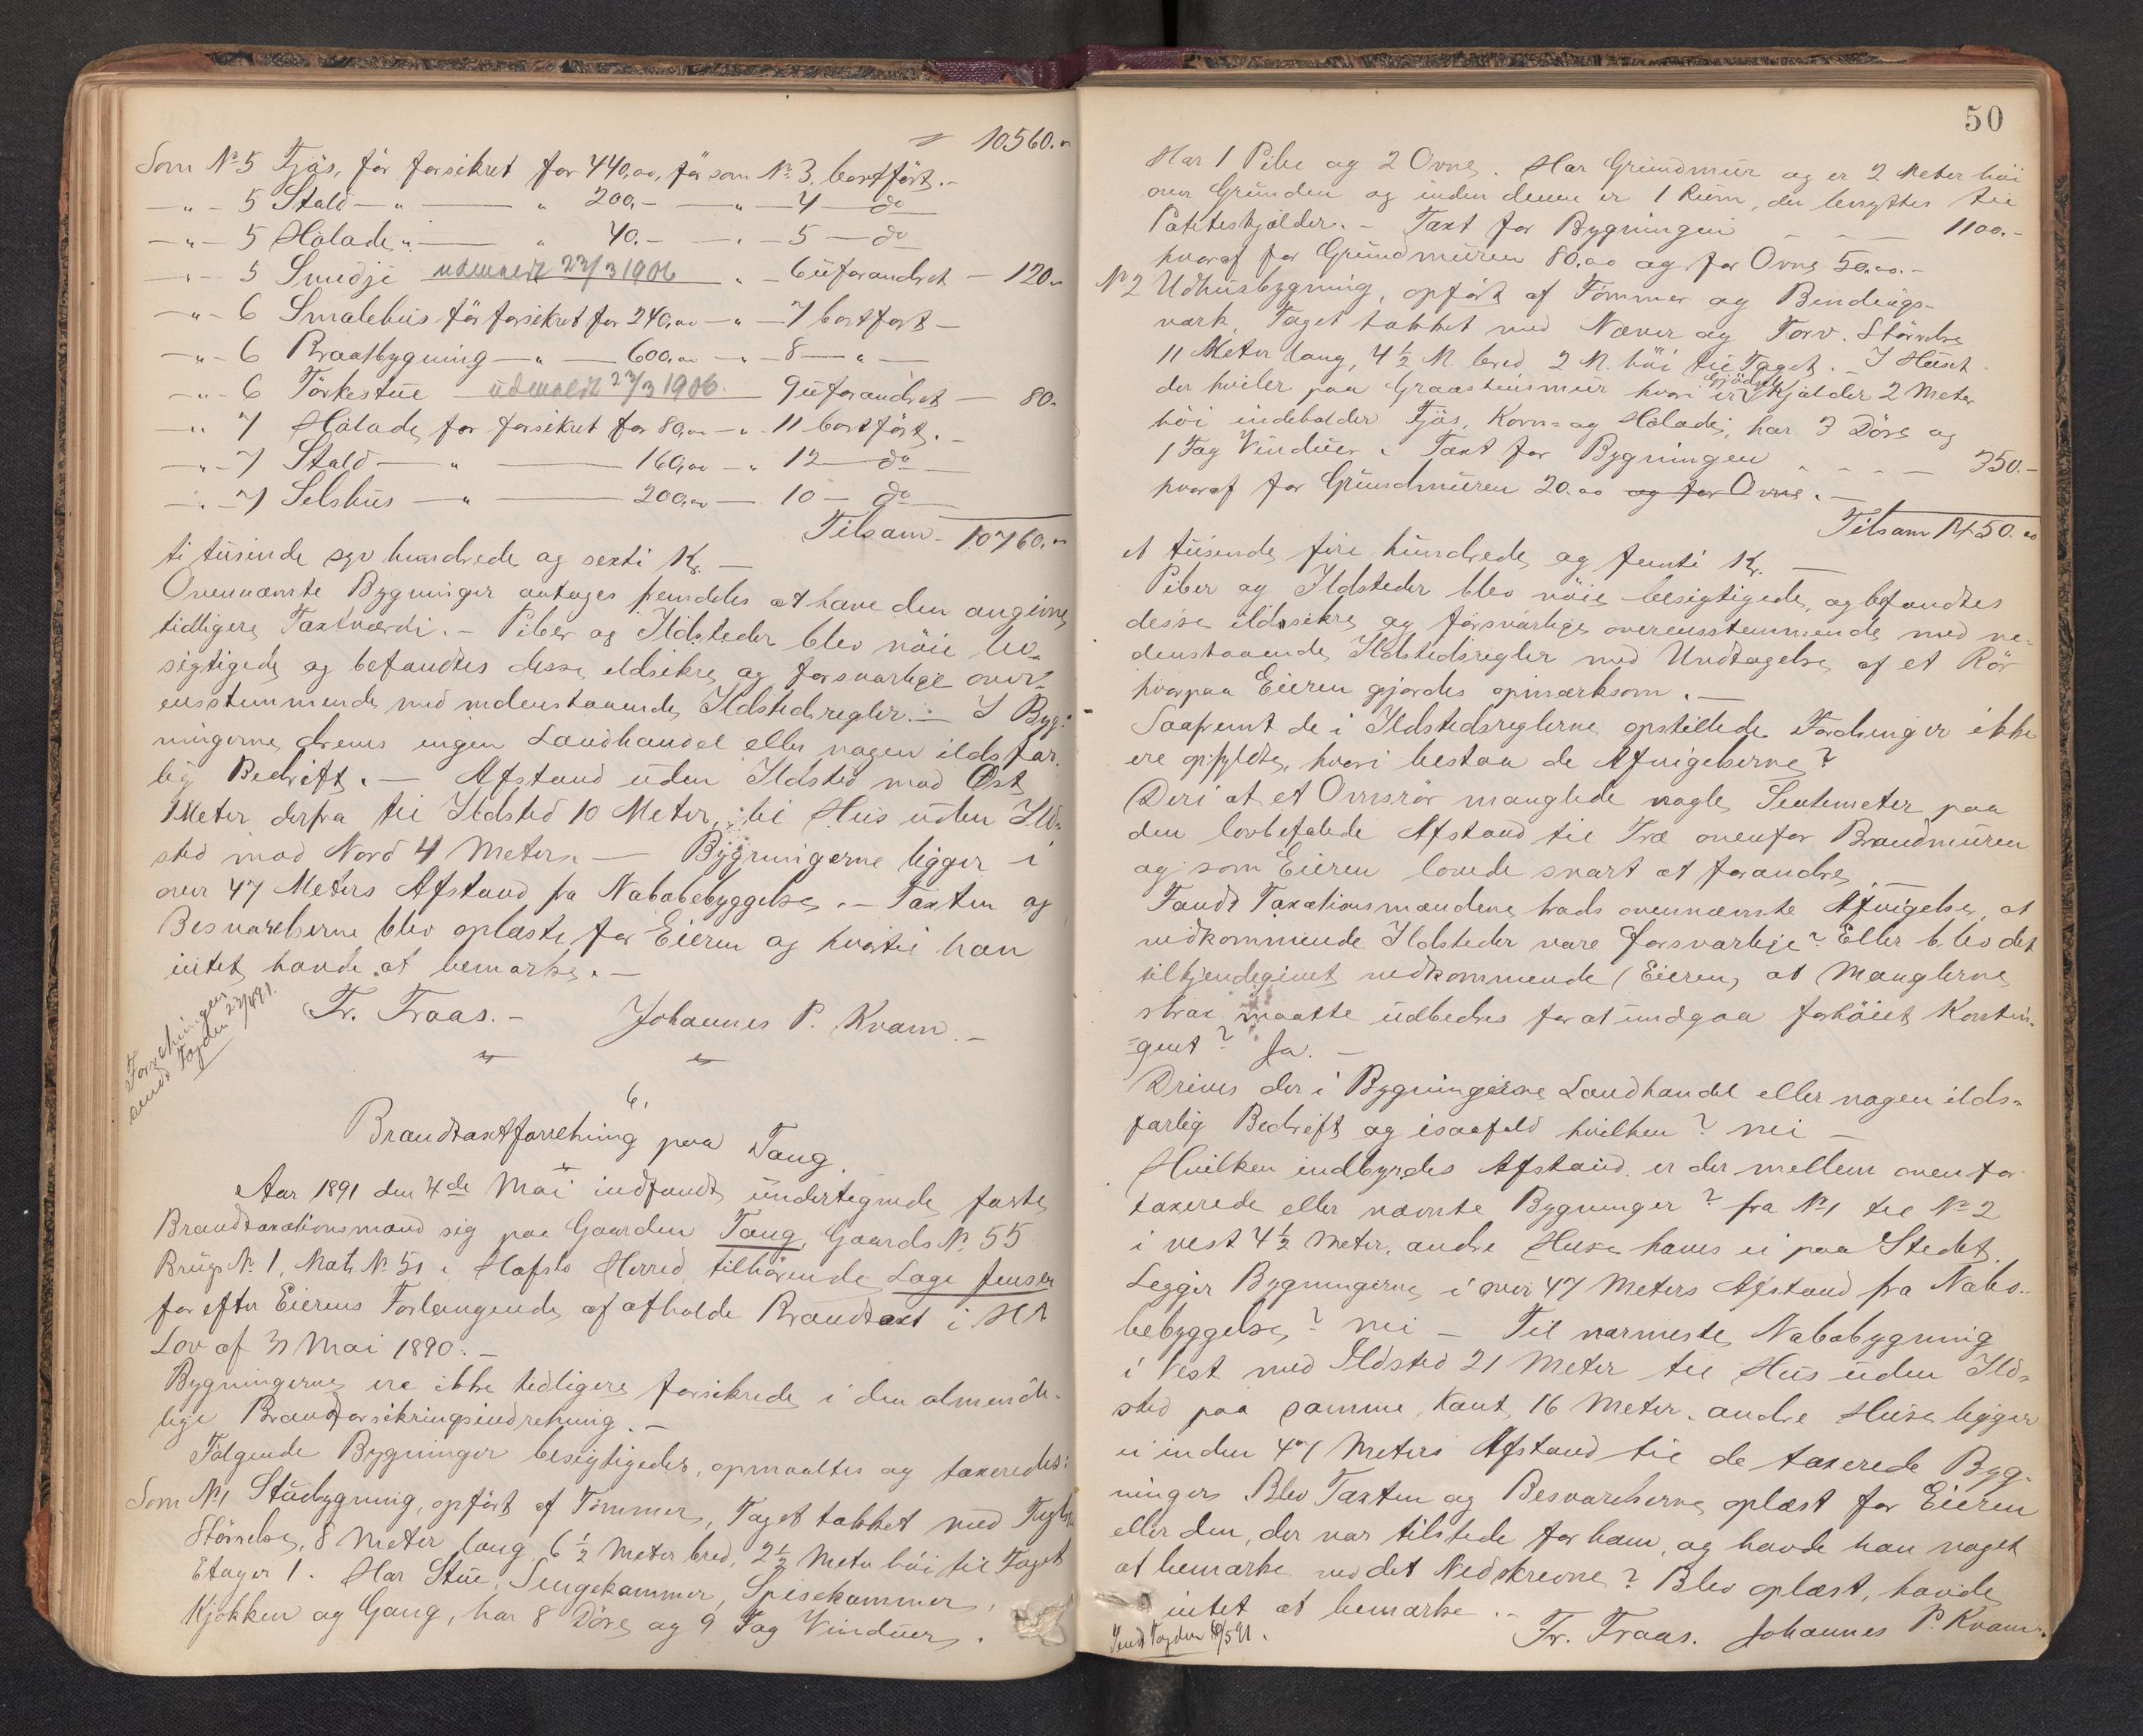 10560.
Som No 5 Fjös, för forsikret for 440,00, för som No 3. bortfört.-
-"- 5 Stald -"- " 200,- -"- 4 do
-"- 5 Hölade " " 40.- -"- 5 do
-"- 5 Smedje udmeldt 23/3 1906 " - 6 uforandret - 120.
-"- 6 Smalehus för forsikret for 240,00 -"- 7 bortfört -
-"- 6 Braatbygning -"- 600,00 -"- 8 -"-
-"- 6 Törkestue udmeldt 23/3 1906. 9 uforandret - 80.
-"- 7 Hölade, för forsikret for 80,00 -"- 11 bortfört.-
-"- 7 Stald -"- 160,00 -"- 12 do
-"- 7 Selshus -"- 200,00 - 10 - do
Tilsam - 10760.
ti tusinde syv hundrede og sexti Kr. -
Ovennævnte Bygninger antages fremdeles at have den angivne
tidligere Taxtværdi. - Piber og Ildsteder blev nöie be-
sigtigede og befandtes disse ildsikre og forsvarlige over-
ensstemmende med nedenstaaende Ildstedsregler. - I Byg-
ningerne drives ingen Landhandel eller nogen ildsfar-
lig Bedrift. - Afstand uden Ildsted mod Öst
1 Meter derfra til Ildsted 10 Meter, til Hus uden Ild-
sted mod Nord 4 Meter. - Bygningerne ligger i
over 47 Meters Afstand fra Nabobebyggelse. - Taxten og
Besvarelserne blev oplæste for Eieren og hvortil han
intet havde at bemærke. -
Forretningen
sendt Fogden 23/4 91.
Fr. Traas. - Johannes P. Kvam. -
6.
Brandtaxtforretning paa Tang.
Aar 1891 den 4de Mai indfandt undertegnede faste
Brandtaxationsmænd sig paa Gaarden Tang, Gaards No. 55
Brugs No 1, Matr. No 51 i Hafslo Herred, tilhörende Lage Jensen
for efter Eierens Forlangende at afholde Brandtaxt i Ht
Lov af 31 Mai 1890. -
Bygningerne ere ikke tidligere forsikrede i den alminde-
lige Brandforsikringsindretning. -
Fölgende Bygninger besigtigedes, opmaaltes og taxeredes:
Som No 1 Stuebygning, opfört af Tömmer, Taget tækket med
Störrelse, 8 Meter lang 6 1/2 Meter bred, 2 1/2 Meter höi til Taget
Etager 1. Har Stue, Sengekammer, Spisekammer,
Kjökken og Gang, har 8 Döre og 9 Fag Vinduer.
50
Har 1 Pibe og 2 Ovne. Har Grundmur og er 2 Meter höi
over Grunden og inden denne er 1 Rum, der benyttes til
Poteteskjelder. - Taxt for Bygningen - - - 1100.-
hvoraf for Grundmuren 80.00 og for Ovne 50.00. -
No 2 Udhusbygning, opfört af Tömmer og Bindings-
værk, Taget tækket med Næver og Torv. Störrelse
11 Meter lang, 4 1/2 M. bred, 2 M. höi til Taget. - I Huset
der hviler paa Graastensmur hvori er Gjödselkjelder 2 Meter
höi indeholder Fjös, Korn- og Hölade, har 3 Döre og
1 Fag Vinduer. Taxt for Bygningen - - - 350.-
hvoraf for Grundmuren 20.00 og for Ovne. -
Tilsam 1450.00
et tusinde, fire hundrede, og femti Kr. -
Piber og Ildsteder blev nöie besigtigede, og befandtes
disse ildsikre og forsvarlige overensstemmende med ne-
denstaaende Ildstedsregler med Undtagelse af et Rör
hvorpaa Eieren gjordes opmærksom. -
Saafremt de i Ildstedsreglerne opstillede Fordringer ikke
ere opfyldte, hvori bestaa de Afvigelserne?
Deri at et Ovnsrör manglede nogle Sentimeter paa
den lovbefalede Afstand til Træ ovenfor Brandmuren
og som Eieren lovede snart at forandre
Fandt Taxationsmændene trods ovennævnte Afvigelse, at
vedkommende Ildsteder vare forsvarlige? Eller blev det
tilkjendegivet vedkommende Eieren, at Manglerne
strax maatte udbedres for at undgaa forhöiet Kontin-
gent? Ja. -
Drives der i Bygningerne Landhandel eller nogen ilds-
farlig Bedrift og isaafald hvilken? nei -
Hvilken indbyrdes Afstand er der mellem ovenfor
taxerede eller nævnte Bygninger? fra No 1 til No 2
i vest 4 1/2 Meter, andre Huse haves ei paa Stedet.
Ligger Bygningerne i over 47 Meters Afstand fra Nabo-
bebyggelse? nei - Til nærmeste Nabobygning
i Vest med Ildsted 21 Meter til Hus uden Ild-
sted paa samme Kant 16 Meter, andre Huse ligger
ei inden 47 Meters Afstand til de taxerede Byg-
ninger. Blev Taxten og Besvarelserne oplæst for Eieren
eller den, der var tilstede for ham, og havde han noget
at bemærke ved det Nedskrevne? Blev oplæst, havde
intet at bemærke. -
Sendt Fogden /5 91.
Fr. Traas. Johannes P. Kvam.